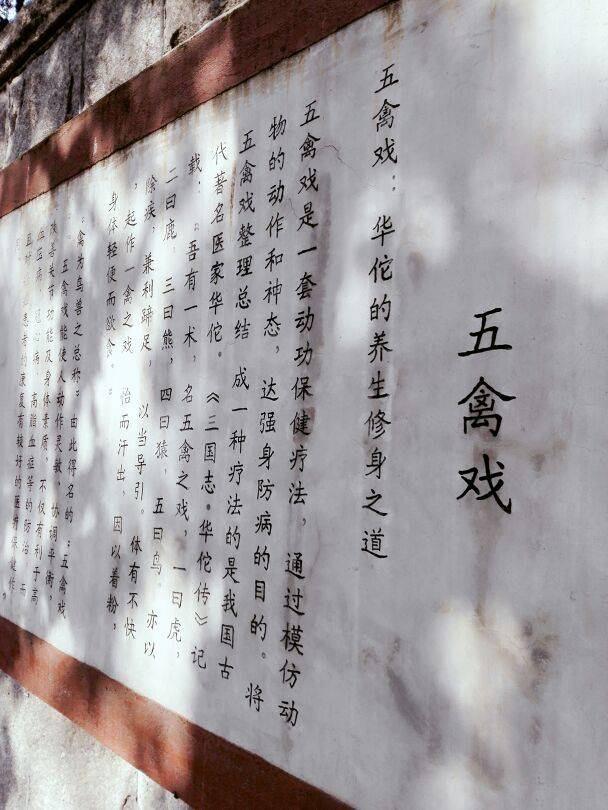 五禽戏
五禽戏：华佗的养生修身之道
五禽戏是一套动功保健疗法，通过模仿动
物的动作和神态，达强身防病的目的。将
五禽戏整理总结 成一种疗法的是我国古
代著名医家华佗。《三国志·华佗传》记
载：“吾有一术，名五禽之戏，一曰虎，
二曰鹿，三曰熊，四曰猿，五曰鸟。亦以
除疾，兼利蹄足，以当导引。体有不快
，起作一禽之戏 怡而汗出，因以着粉，
身体轻便而欲食。”
“禽为鸟兽之总称”由此得名的“五禽戏
五禽戏能使人动作灵敏，协调平衡，
改善关节功能及身体素质，不仅有利于高
血压病、冠心病、高脂血症等的防治，而
且对 患者的康复有较好的医疗保健作